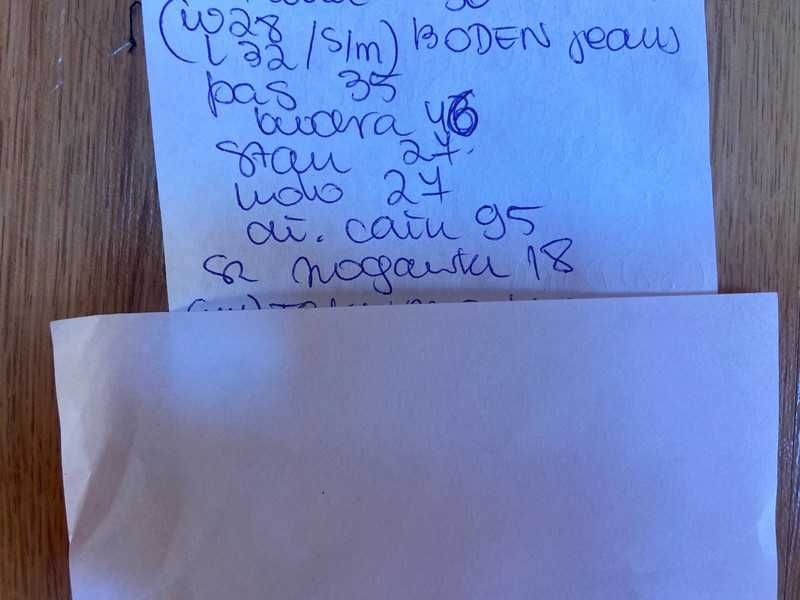 (W28
L 32 /S/m) BODEN jeans
pas 35
biodra 46
stan 27.
udo 27
dł. całk 95
sz nogawki 18